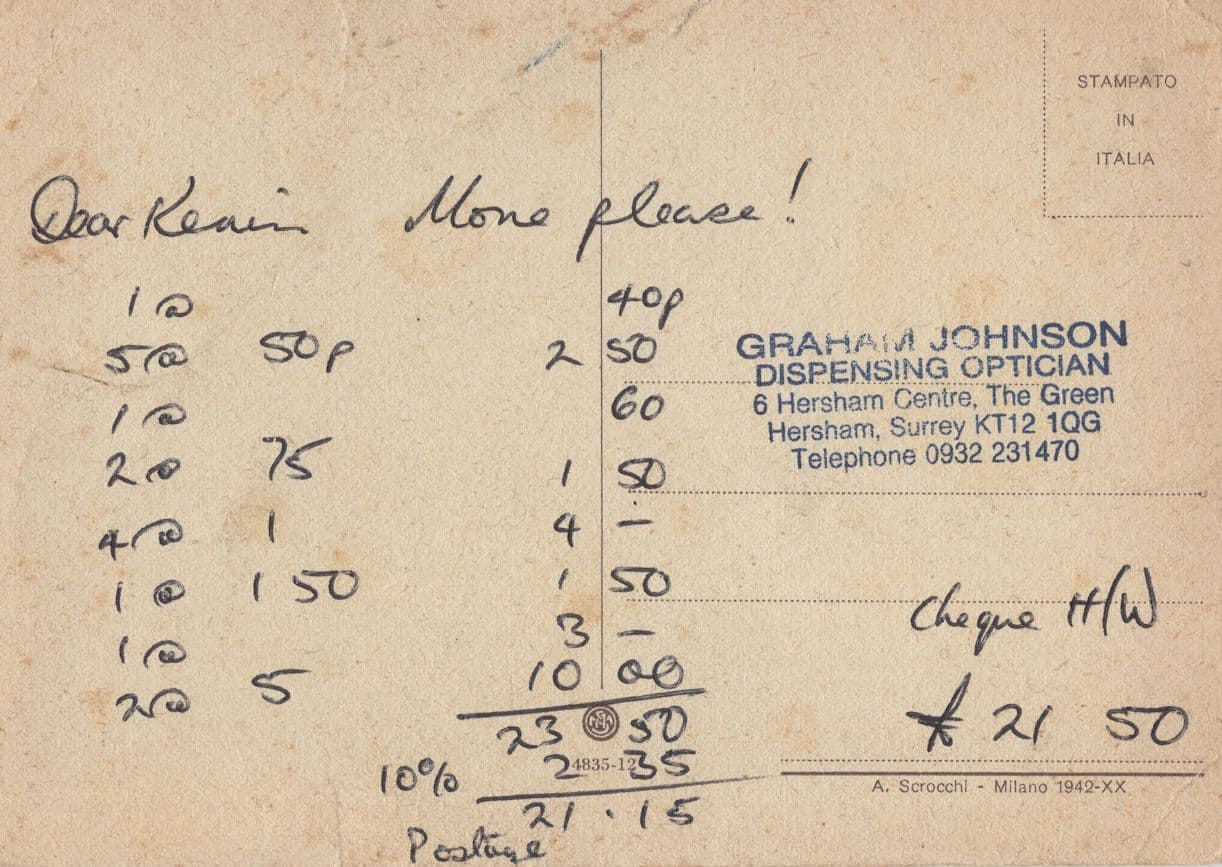 STAMPATO
IN
ITALIA
Dear Kevin More please!
1 @ 40p
5 @ 50p 2 50
1 @ 60
2 @ 75 1 50
4 @ 1 4 —
1 @ 1 50 1 50
1 @ 3 —
2 @ 5 10 00
23 50
10% 2 35
21.15
Postage
GRAHAM JOHNSON
DISPENSING OPTICIAN
6 Hersham Centre, The Green
Hersham, Surrey KT12 1QG
Telephone 0932 231470
Cheque H/W
£ 21 50
4835-12
A. Scrocchi - Milano 1942-XX